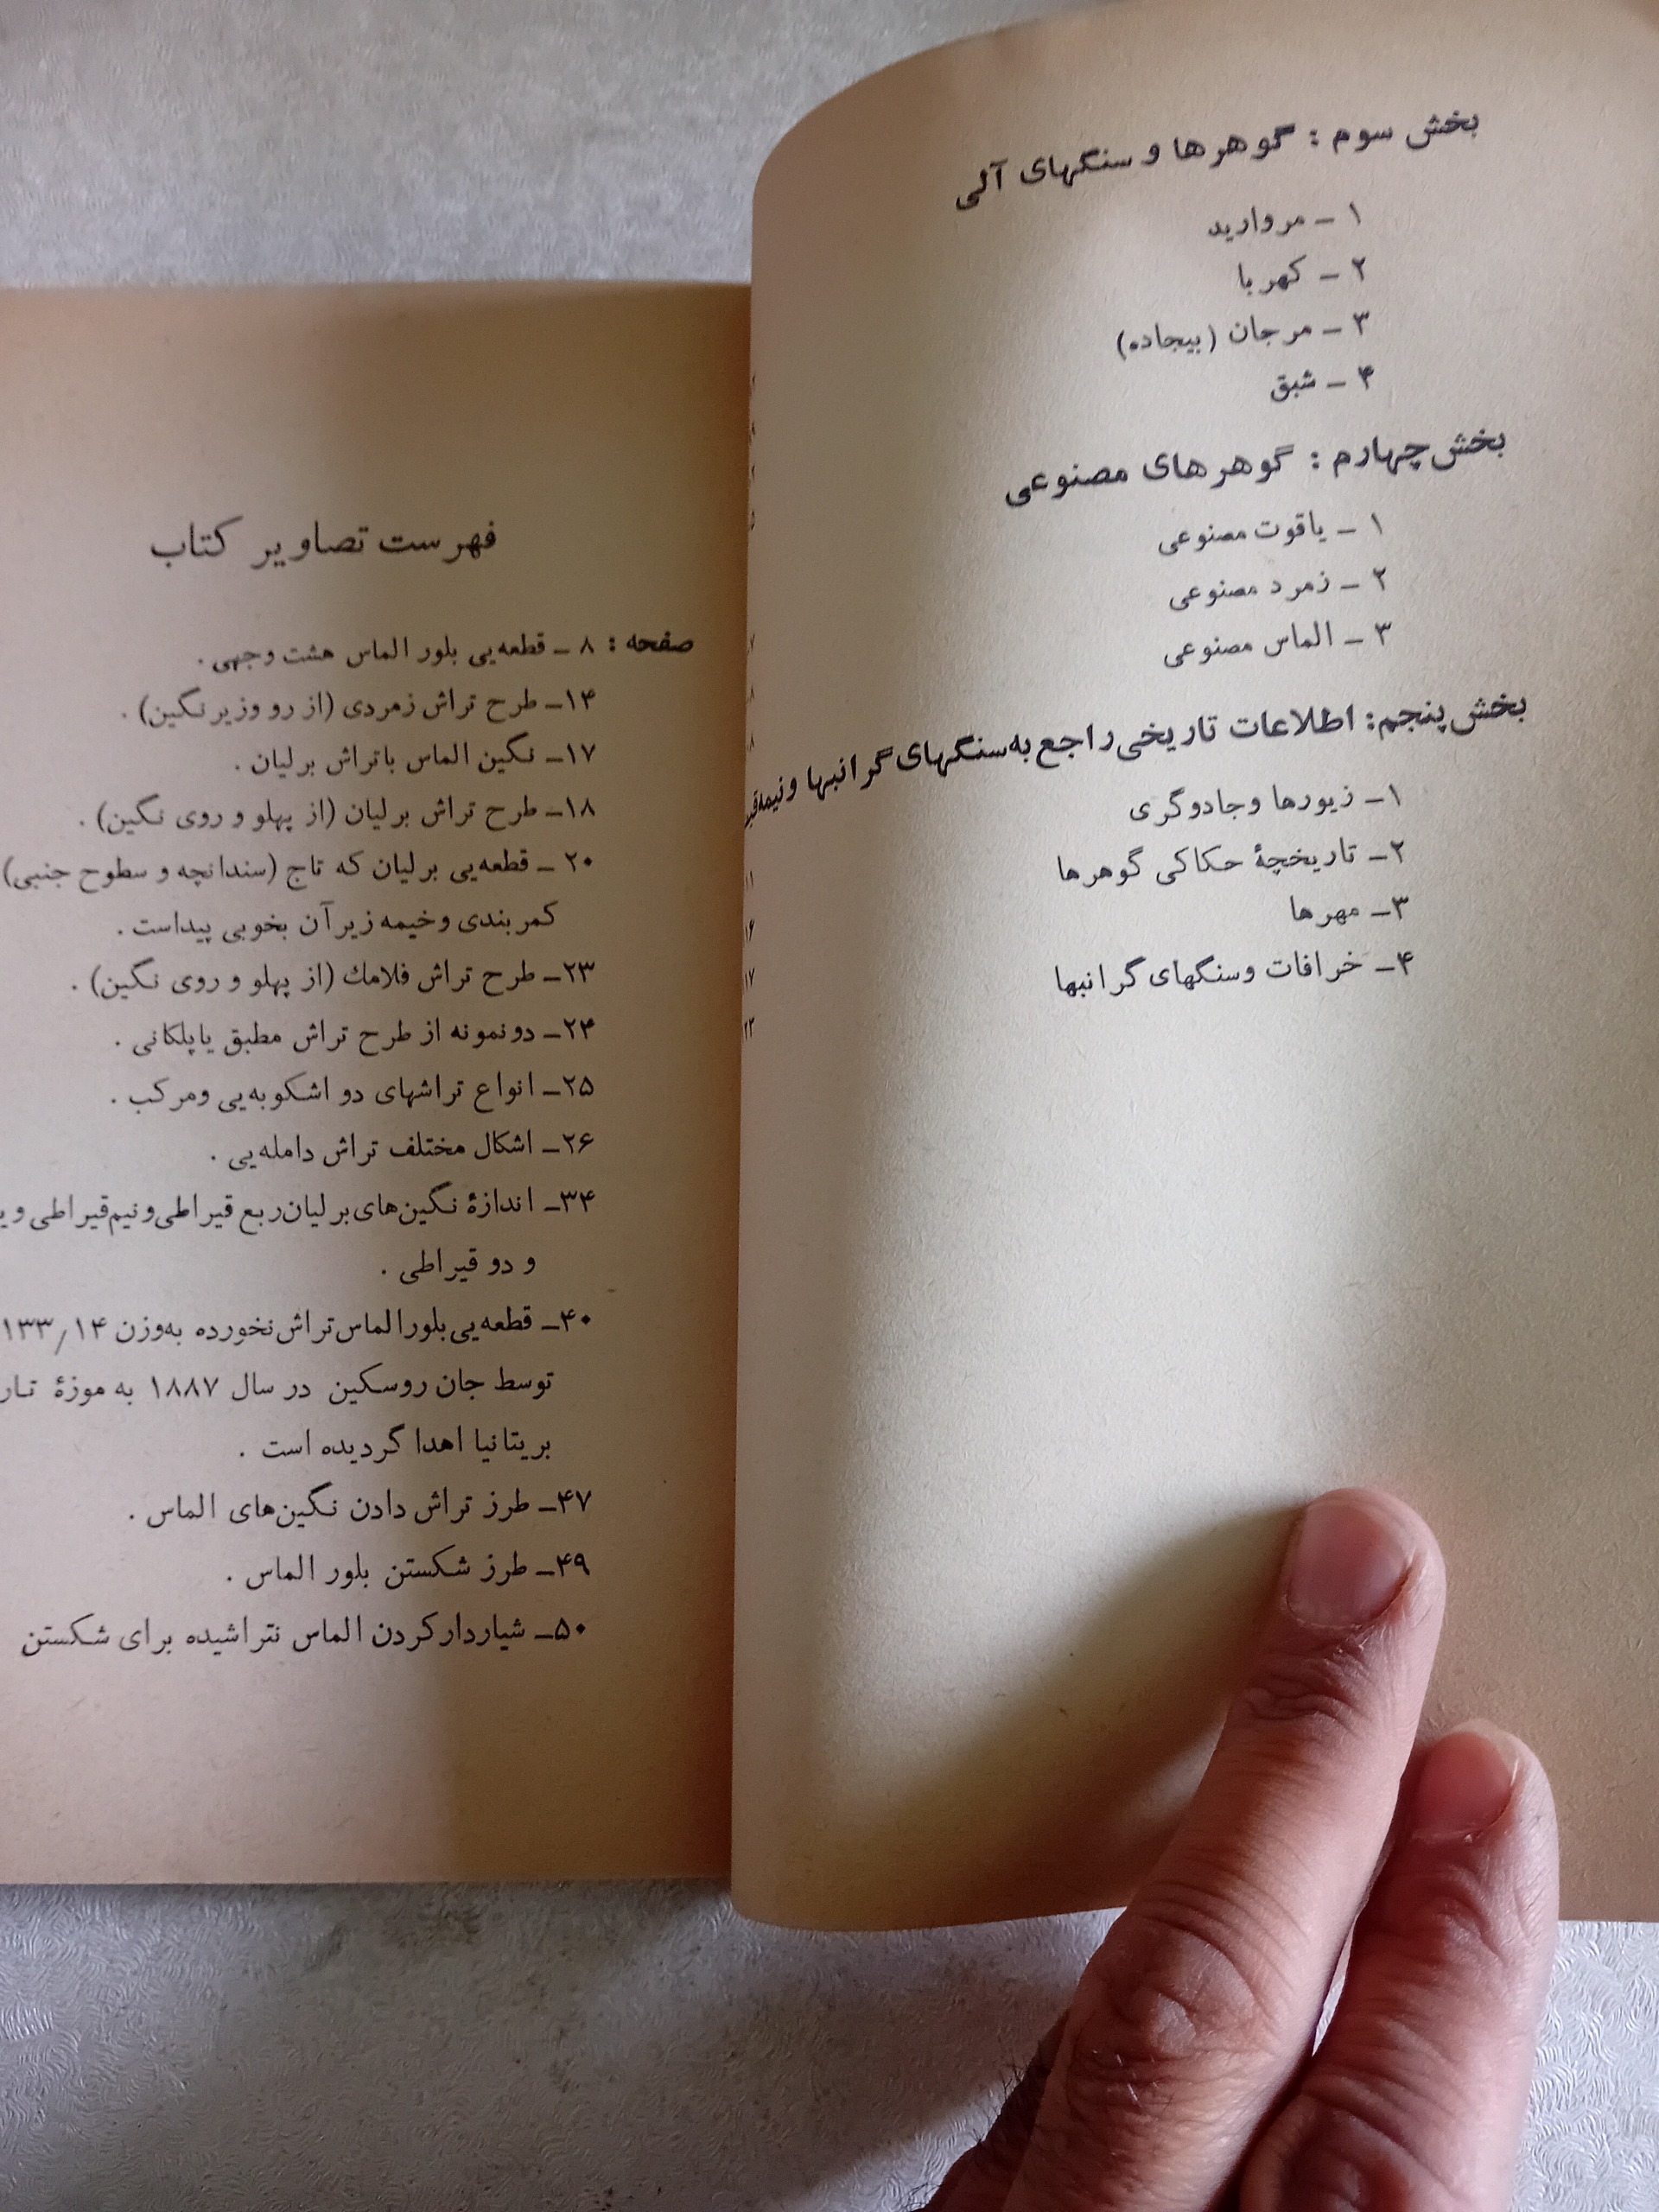 بخش سوم : گوهرها و سنگهای آلی
۱ – مروارید
۲ – کهربا
۳ – مرجان (بیجاده)
۴ – شبق
بخش چهارم : گوهرهای مصنوعی
۱ – یاقوت مصنوعی
۲ – زمرد مصنوعی
۳ – الماس مصنوعی
بخش پنجم: اطلاعات تاریخی راجع به سنگهای گرانبها و
۱– زیورها و جادوگری
۲– تاریخچهٔ حکاکی گوهرها
۳– مهرها
۴– خرافات و سنگهای گرانبها
فهرست تصاویر کتاب
صفحه : ۸ – قطعه‌یی بلور الماس هشت وجهی .
۱۴– طرح تراش زمردی (از رو و زیر نگین) .
۱۷– نگین الماس با تراش برلیان .
۱۸– طرح تراش برلیان (از پهلو و روی نگین) .
۲۰ – قطعه‌یی برلیان که تاج (سندانچه و سطوح جنبی)
کمربندی و خیمه زیر آن بخوبی پیداست .
۲۳– طرح تراش فلامك (از پهلو و روی نگین) .
۲۴– دو نمونه از طرح تراش مطبق یا پلکانی .
۲۵– انواع تراشهای دو اشکوبه‌یی و مرکب .
۲۶– اشکال مختلف تراش دامله‌یی .
۳۴– اندازهٔ نگین‌های برلیان ربع قیراطی و نیم‌قیراطی و
و دو قیراطی .
۴۰– قطعه‌یی بلور الماس تراش نخورده به‌وزن ۱۳۳/۱۴
توسط جان روسکین در سال ۱۸۸۷ به موزهٔ
بریتانیا اهدا گردیده است .
۴۷– طرز تراش دادن نگین‌های الماس .
۴۹– طرز شکستن بلور الماس .
۵۰– شیاردار کردن الماس نتراشیده برای شکستن